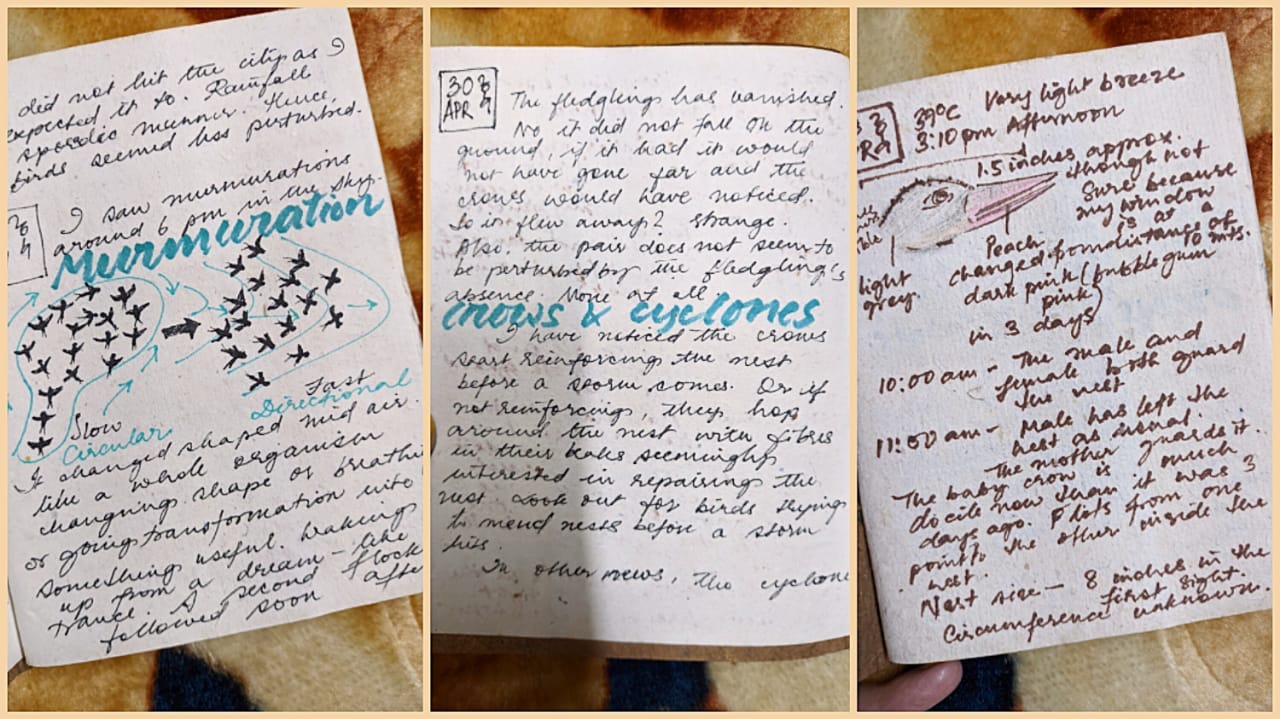 did not hit the city as I
expected it to. Rainfall
sporadic manner. Hence
birds seemed less perturbed.
I saw murmurations
around 6 pm in the sky.
Murmuration
Slow
Circular
Fast
Directional
It changed shaped mid air.
like a whole organism
changings shape or breathi
or going transformation into
something useful. Waking
up from a dream - like
trance. A second flock
followed soon after
30
APR
The fledglings has vanished.
No it did not fall on the
ground, if it had it would
not have gone far and the
crows would have noticed.
So it flew away? Strange.
Also, the pair does not seem to
be perturbed by the fledgling's
absence. None at all
crows & cyclones
I have noticed the crows
start reinforcing the nest
before a storm comes. Or if
not reinforcing, they hop
around the nest with fibres
in their beaks seemingly
interested in repairing the
nest. Look out for birds trying
to mend nests before a storm
hits.
In other news, the cyclone
39°C Very light breeze
3:10 pm Afternoon
1.5 inches approx.
though not
sure because
my window
is at a
distance of
10 mts.
light
grey.
Peach
changed from
dark pink (bubblegum
pink)
in 3 days
10:00 am - The male and
female both guard
the nest
11:50 am - Male has left the
nest as usual.
The mother guards it.
The baby crow is much
docile now than it was 3
days ago. Flots from one
point to the other inside the
nest.
Nest size - 8 inches in the
first sight.
Circumference unknown.